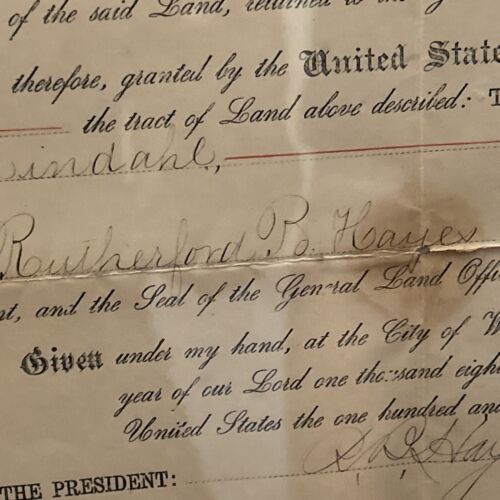 of the said Land, retained to the
therefore, granted by the United State
the tract of Land above described: T
indahl,
Rutherford B. Hayes
nt, and the Seal of the General Land Offi
Given under my hand, at the City of W
year of our Lord one thousand eigh
United States the one hundred an
R. B. Hay
THE PRESIDENT: